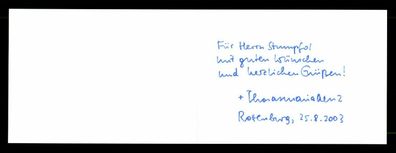 Für Herrn Stumpfol
mit guten Wünschen
und herzlichen Grüßen!
+ Thomas Maria Renz
Rottenburg, 25.8.2003